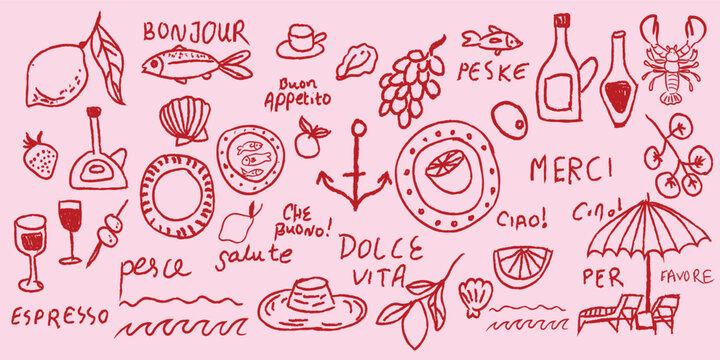 BONJOUR
PESKE
Buon
APPETITO
MERCI
CHE
BUONO!
CIAO!
CIAO!
salute
DOLCE
VITA
pesce
PER FAVORE
ESPRESSO